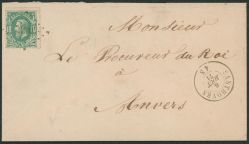 Monsieur
Le Procureur du Roi
à
Anvers